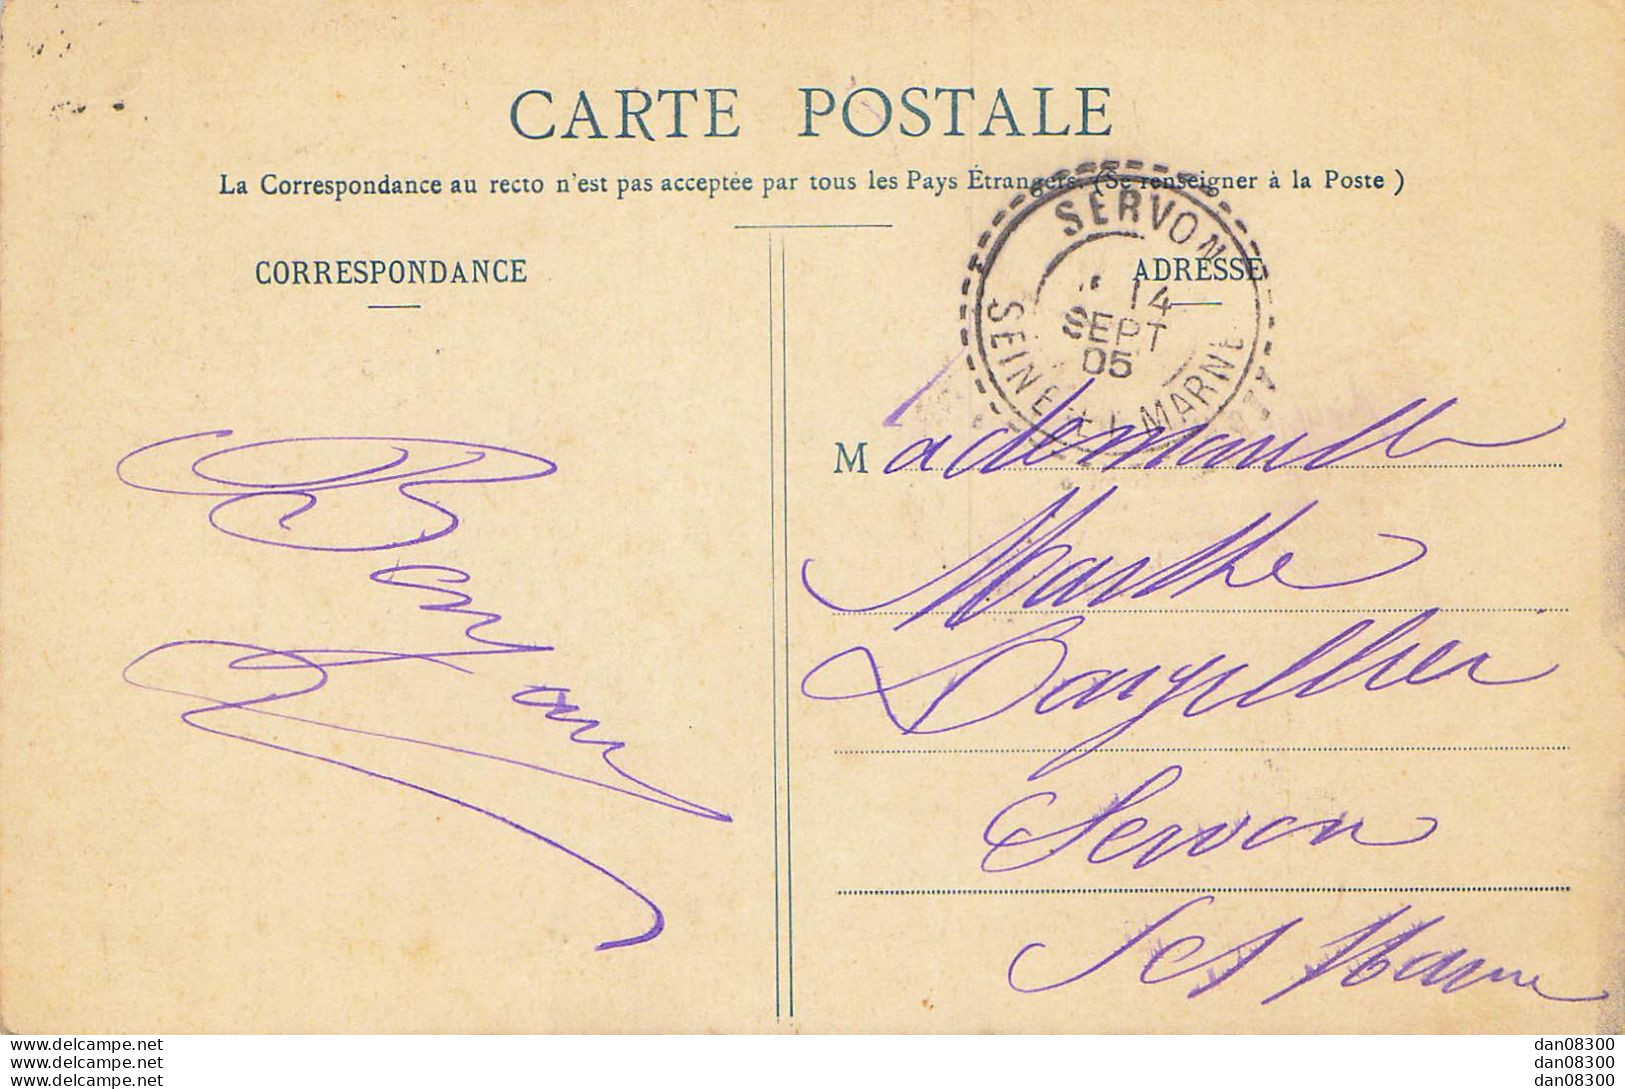 CARTE POSTALE
La Correspondance au recto n'est pas acceptée par tous les Pays Étrangers. (Se renseigner à la Poste )
CORRESPONDANCE
ADRESSE
SERVON
14
SEPT
05
SEINE-ET-MARNE
Mademoiselle
Marthe
Servon
S et Marne
www.delcampe.net
www.delcampe.net
www.delcampe.net
dan08300
dan08300
dan08300